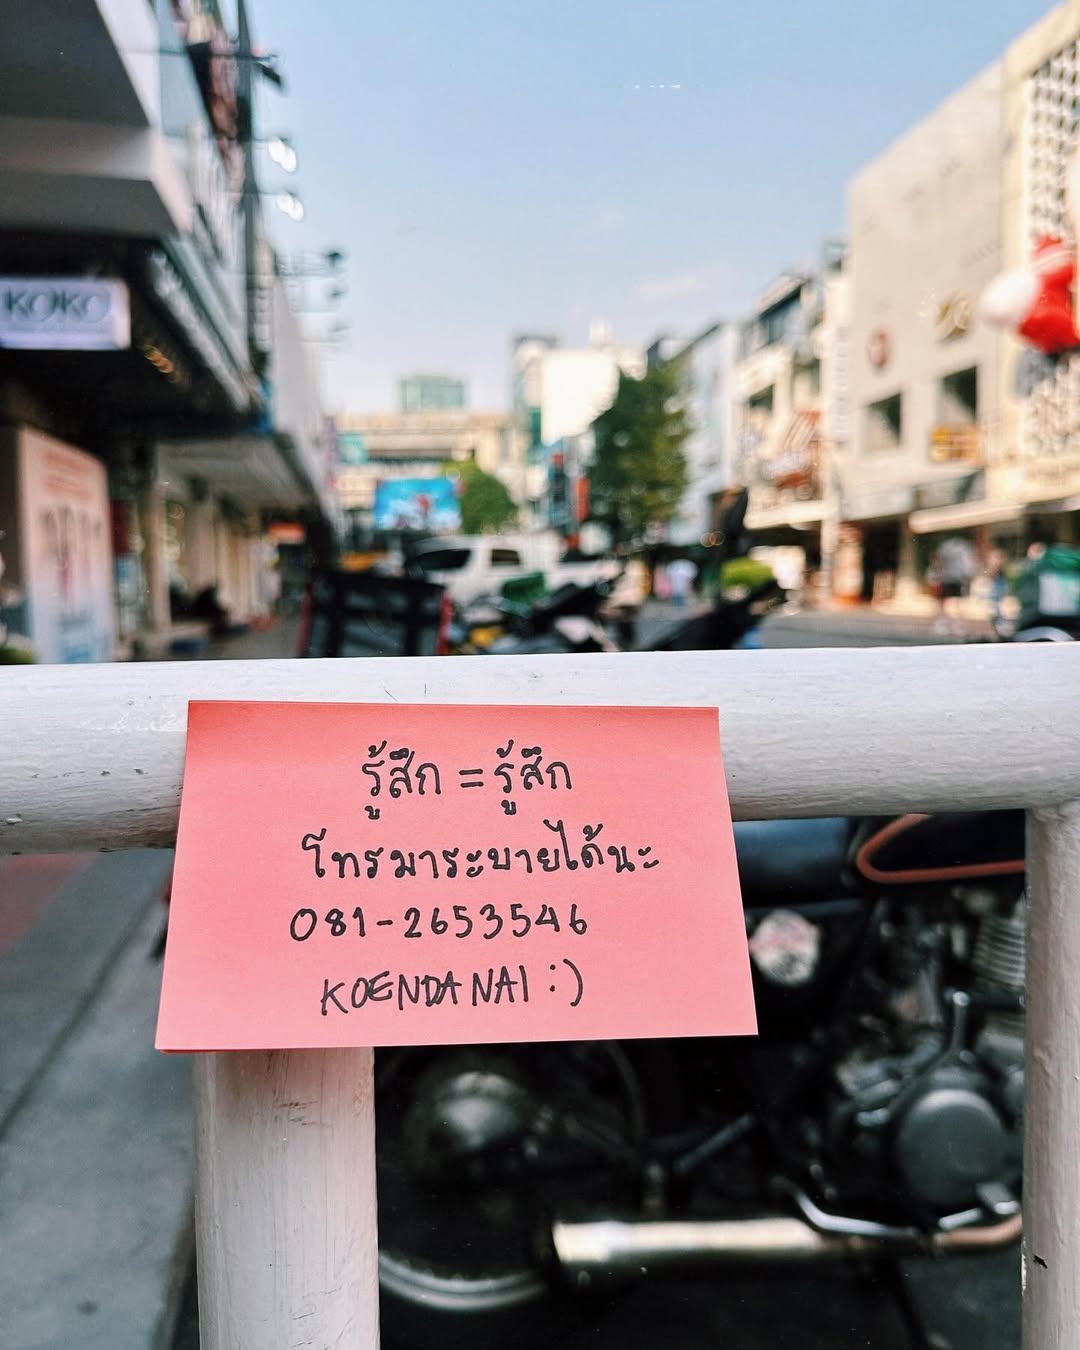 KOKO
รู้สึก = รู้สึก
โทรมาระบายได้นะ
081-2653546
KOENDANAI :)